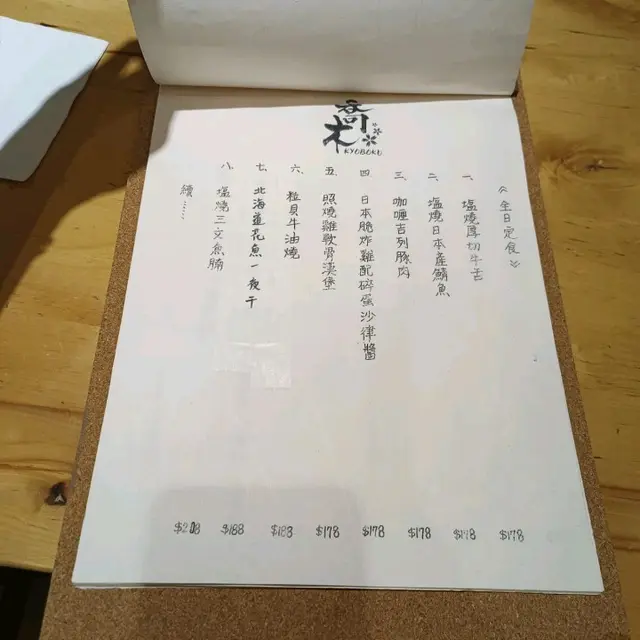 喬木
KYOBOKU
《全日定食》
一. 塩燒厚切牛舌
二. 塩燒日本產鯖魚
三. 咖喱吉列豚肉
四. 日本脆炸雞配碎蛋沙律醬
五. 照燒雞軟骨漢堡
六. 粒貝牛油燒
七. 北海道花魚一夜干
八. 塩燒三文魚腩
續......
$178
$178
$178
$178
$178
$188
$208